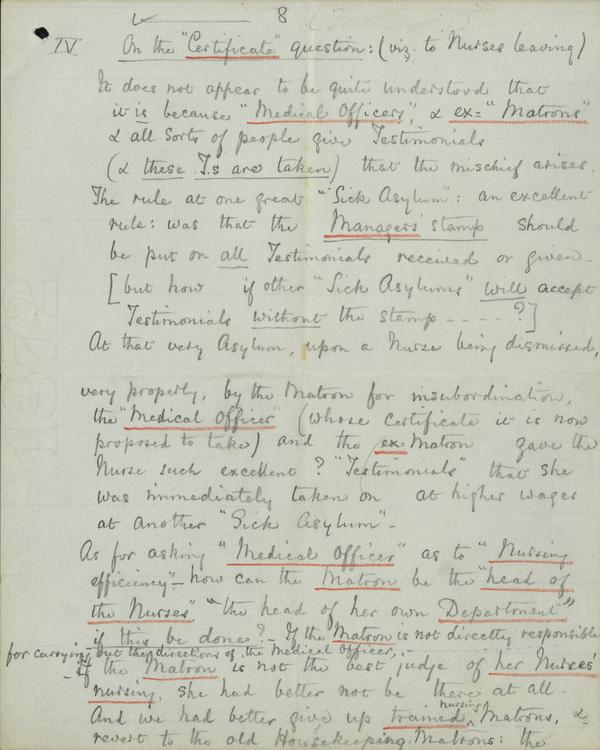 8
IV On the "Certificate" question: (viz. to Nurses leaving)
It does not appear to be quite understood that
it is because "Medical Officers", & ex="Matrons"
& all sorts of people give Testimonials
(& these T.s are taken) that the mischief arises.
The rule at one great "Sick Asylum": an excellent
rule: was that the Managers' stamp should
be put on all Testimonials received or given_
[but how if other "Sick Asylums" will accept
Testimonials without the stamp ----?]
At that very Asylum, upon a Nurse being dismissed,
very properly, by the Matron for insubordination,
the "Medical Officer" (whose certificate it is now
proposed to take) and the ex=Matron gave the
Nurse such excellent ? "Testimonials" that she
was immediately taken on at higher wages
at another "Sick Asylum"_
As for asking "Medical Officer" as to "Nursing
efficiency"_ how can the Matron be the "head of
the Nurses" "the head of her own Department"
if this be done?_ If the Matron is not directly responsible
for carrying out the directions of the Medical Officer,
_ If the Matron is not the best judge of her Nurses'
nursing, she had better not be there at all.
And we had better give up trained nursing Matrons, &
revert to the old Housekeeping Matrons: the